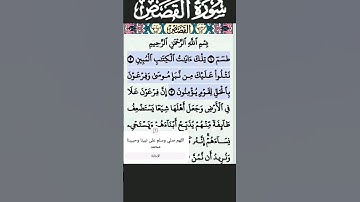 سُورَةُ القَصَصِ
القَصَصِ
بِسْمِ اللَّهِ الرَّحْمَٰنِ الرَّحِيمِ
طسٓمٓ ۝ تِلْكَ ءَايَٰتُ ٱلْكِتَٰبِ ٱلْمُبِينِ ۝
نَتْلُوا۟ عَلَيْكَ مِن نَّبَإِ مُوسَىٰ وَفِرْعَوْنَ
بِٱلْحَقِّ لِقَوْمٍ يُؤْمِنُونَ ۝ إِنَّ فِرْعَوْنَ عَلَا
فِى ٱلْأَرْضِ وَجَعَلَ أَهْلَهَا شِيَعًا يَسْتَضْعِفُ
طَآئِفَةً مِّنْهُمْ يُذَبِّحُ أَبْنَآءَهُمْ وَيَسْتَحْىِۦ
نِسَآءَهُمْ إِنَّهُۥ
اللهم صلي وسلم على نبينا وحبيبنا
محمد
وَنُرِيدُ أَن نَّمُنَّ